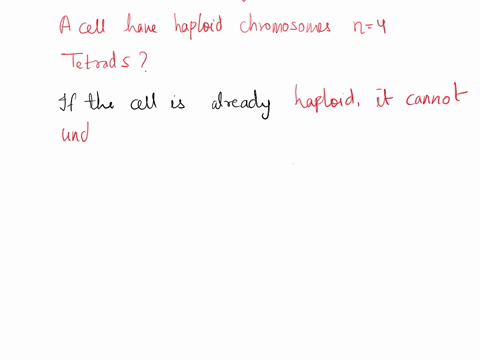 A cell have haploid chromosomes n=4
Tetrads?
If the cell is already haploid, it cannot
und